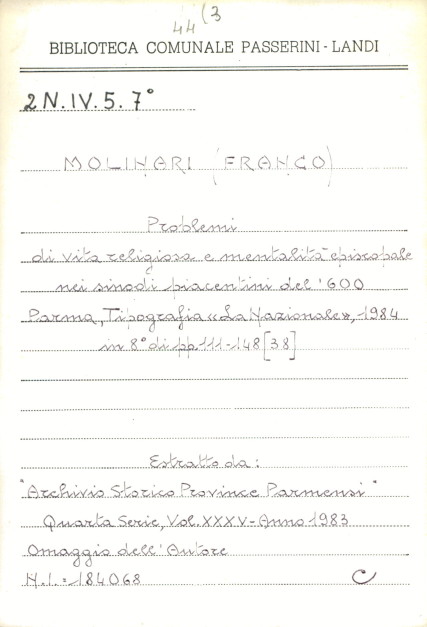 44 (3
BIBLIOTECA COMUNALE PASSERINI-LANDI
2N.IV.5.7°
MOLINARI (FRANCO)
Problemi
di vita religiosa e mentalità episcopale
nei sinodi piacentini del '600
Parma, Tipografia «La Nazionale», 1984
in 8° di pp 111-148 [38]
Estratto da:
"Archivio Storico Province Parmensi"
Quarta Serie, Vol. XXXV-Anno 1983
Omaggio dell'Autore
N.I.=184068 C